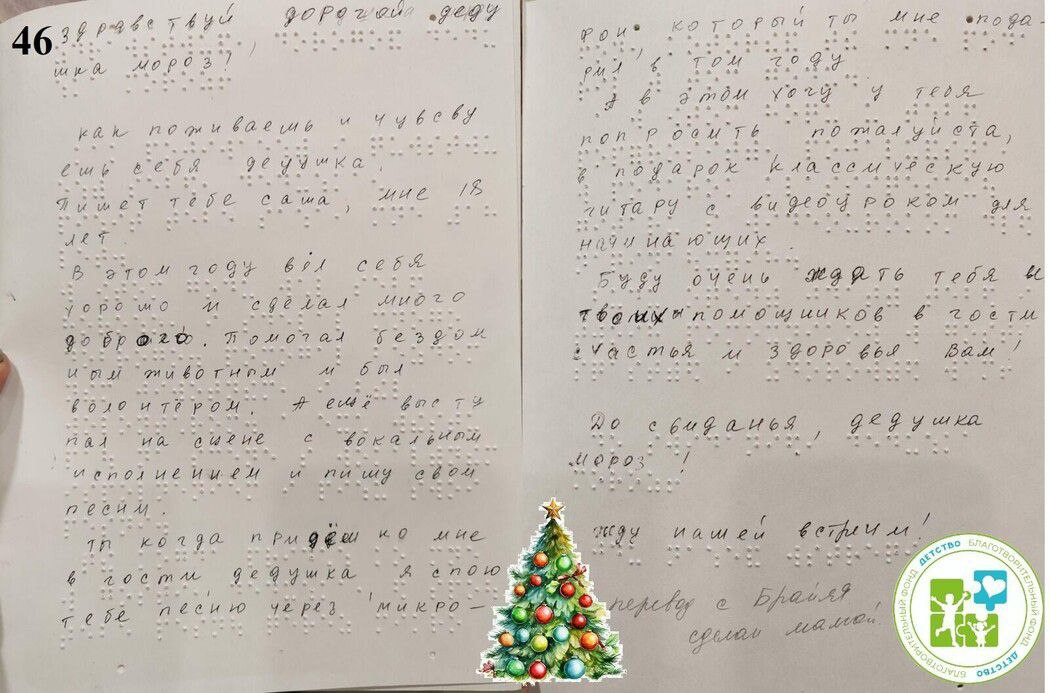 46
здравствуй дорогой деду
шка мороз!
как поживаешь и чувсву
ешь себя дедушка.
Пишет тебе саша, мне 18
лет.
В этом году вёл себя
хорошо и сделал много
доброго. Помогал бездом
ным животным и был
волонтёром. А ещё высту
пал на сцене с вокальным
исполнением и пишу свои
песни.
ты когда придёш ко мне
в гости дедушка я спою
тебе песню через микро-
фон который ты мне пода-
рил в том году
А в этом хочу у тебя
попросить пожалуйста,
в подарок классическую
гитару с видеоуроком для
начинающих.
Буду очень ждать тебя и
твоих помощников в гости
счастья и здоровья Вам!
До свиданья, дедушка
мороз!
жду нашей встречи!
перевод с Брайля
сделан мамой.
БЛАГОТВОРИТЕЛЬНЫЙ ФОНД ДЕТСТВО БЛАГОТВОРИТЕЛЬНЫЙ ФОНД ДЕТСТВО